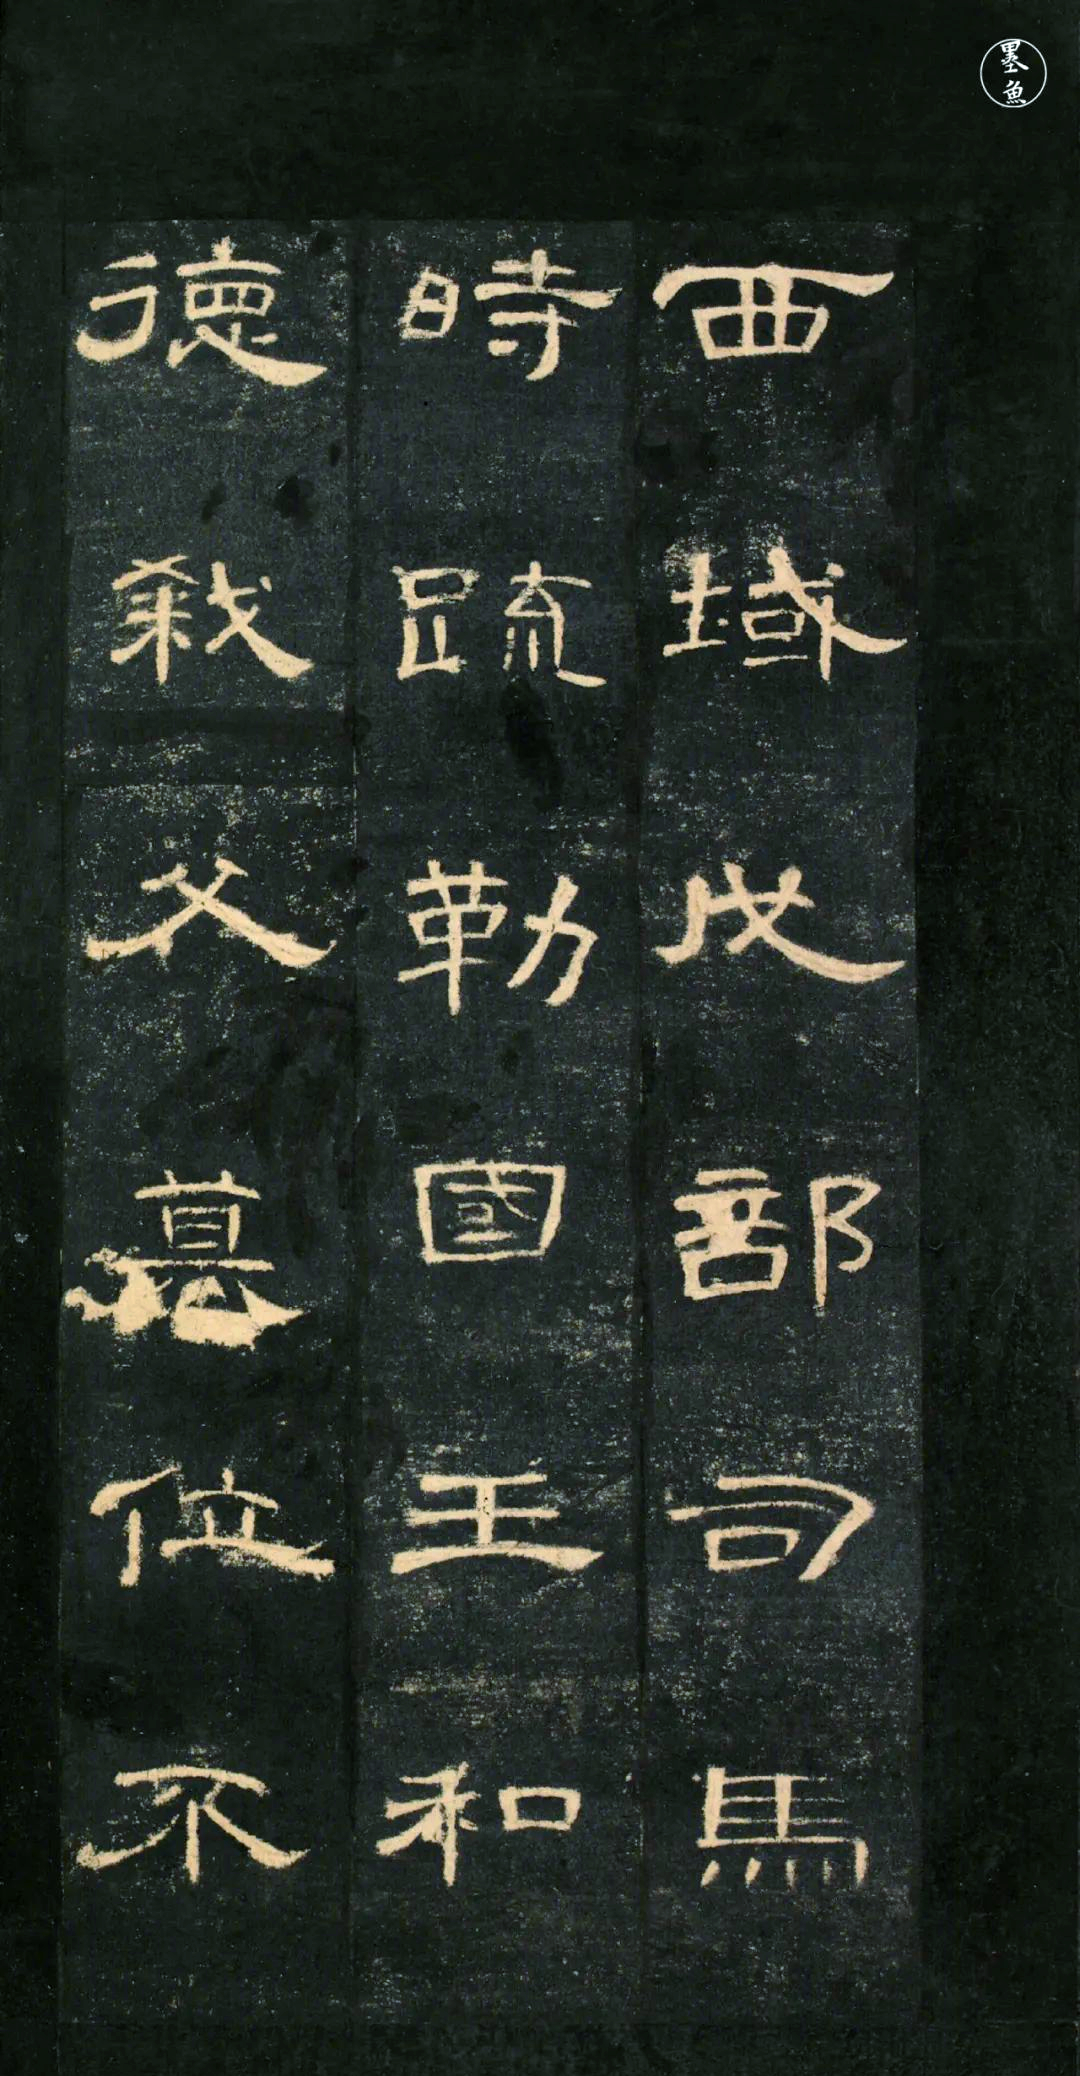 西域戊部司馬
時疏勒國王和
德弒父篡位不
墨魚